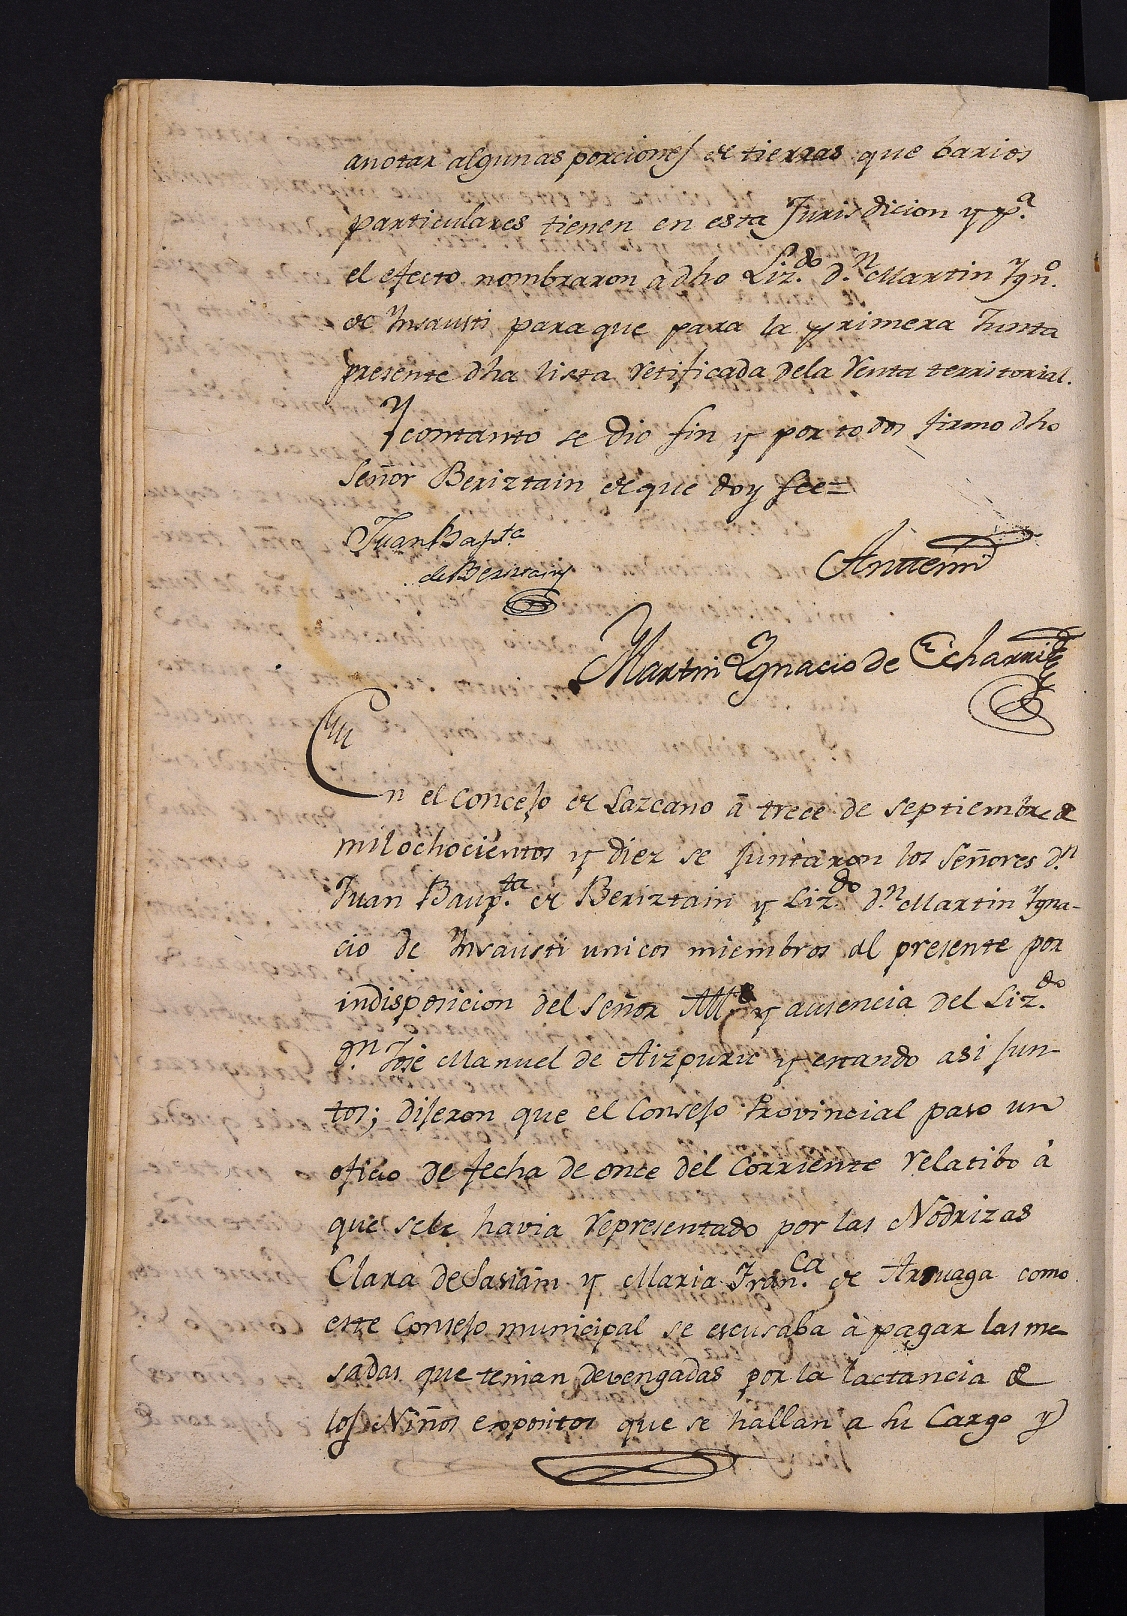 anotar algunas porciones de tierras que barios
particulares tienen en esta Jurisdicion y p.ª
el efecto nombraron a dho Liz.do d.n Martin Ygn.º
de Ynsausti para que para la primera Junta
presente dha lista retificada dela renta territorial.
Y contanto se dio fin y por todos firmo dho
Señor Beriztain de que doy fee=
Juan Bap.ta
de Beriztain
Antemi
Martin Ygnacio de Echarri
En el Concejo de Lazcano â trece de septiembre de
mil ochocientos y diez se juntaron los Señores d.n
Juan Baup.ta de Beriztain y Liz.do d.n Martin Ygna-
cio de Ynsausti unicos miembros al presente por
indisposicion del Señor All.e y ausencia del Liz.do
d.n Jose Manuel de Aizpuru y estando asi jun
tos; dijeron que el Consejo Provincial paso un
oficio de fecha de once del Corriente relatibo à
que sele havia representado por las Nodrizas
Clara de Sasiain y Maria Fran.ca de Aruaga como
este Consejo municipal se escusaba à pagar las me
sadas que tenian devengadas por la lactancia de
los Niños expositos que se hallan a su Cargo y